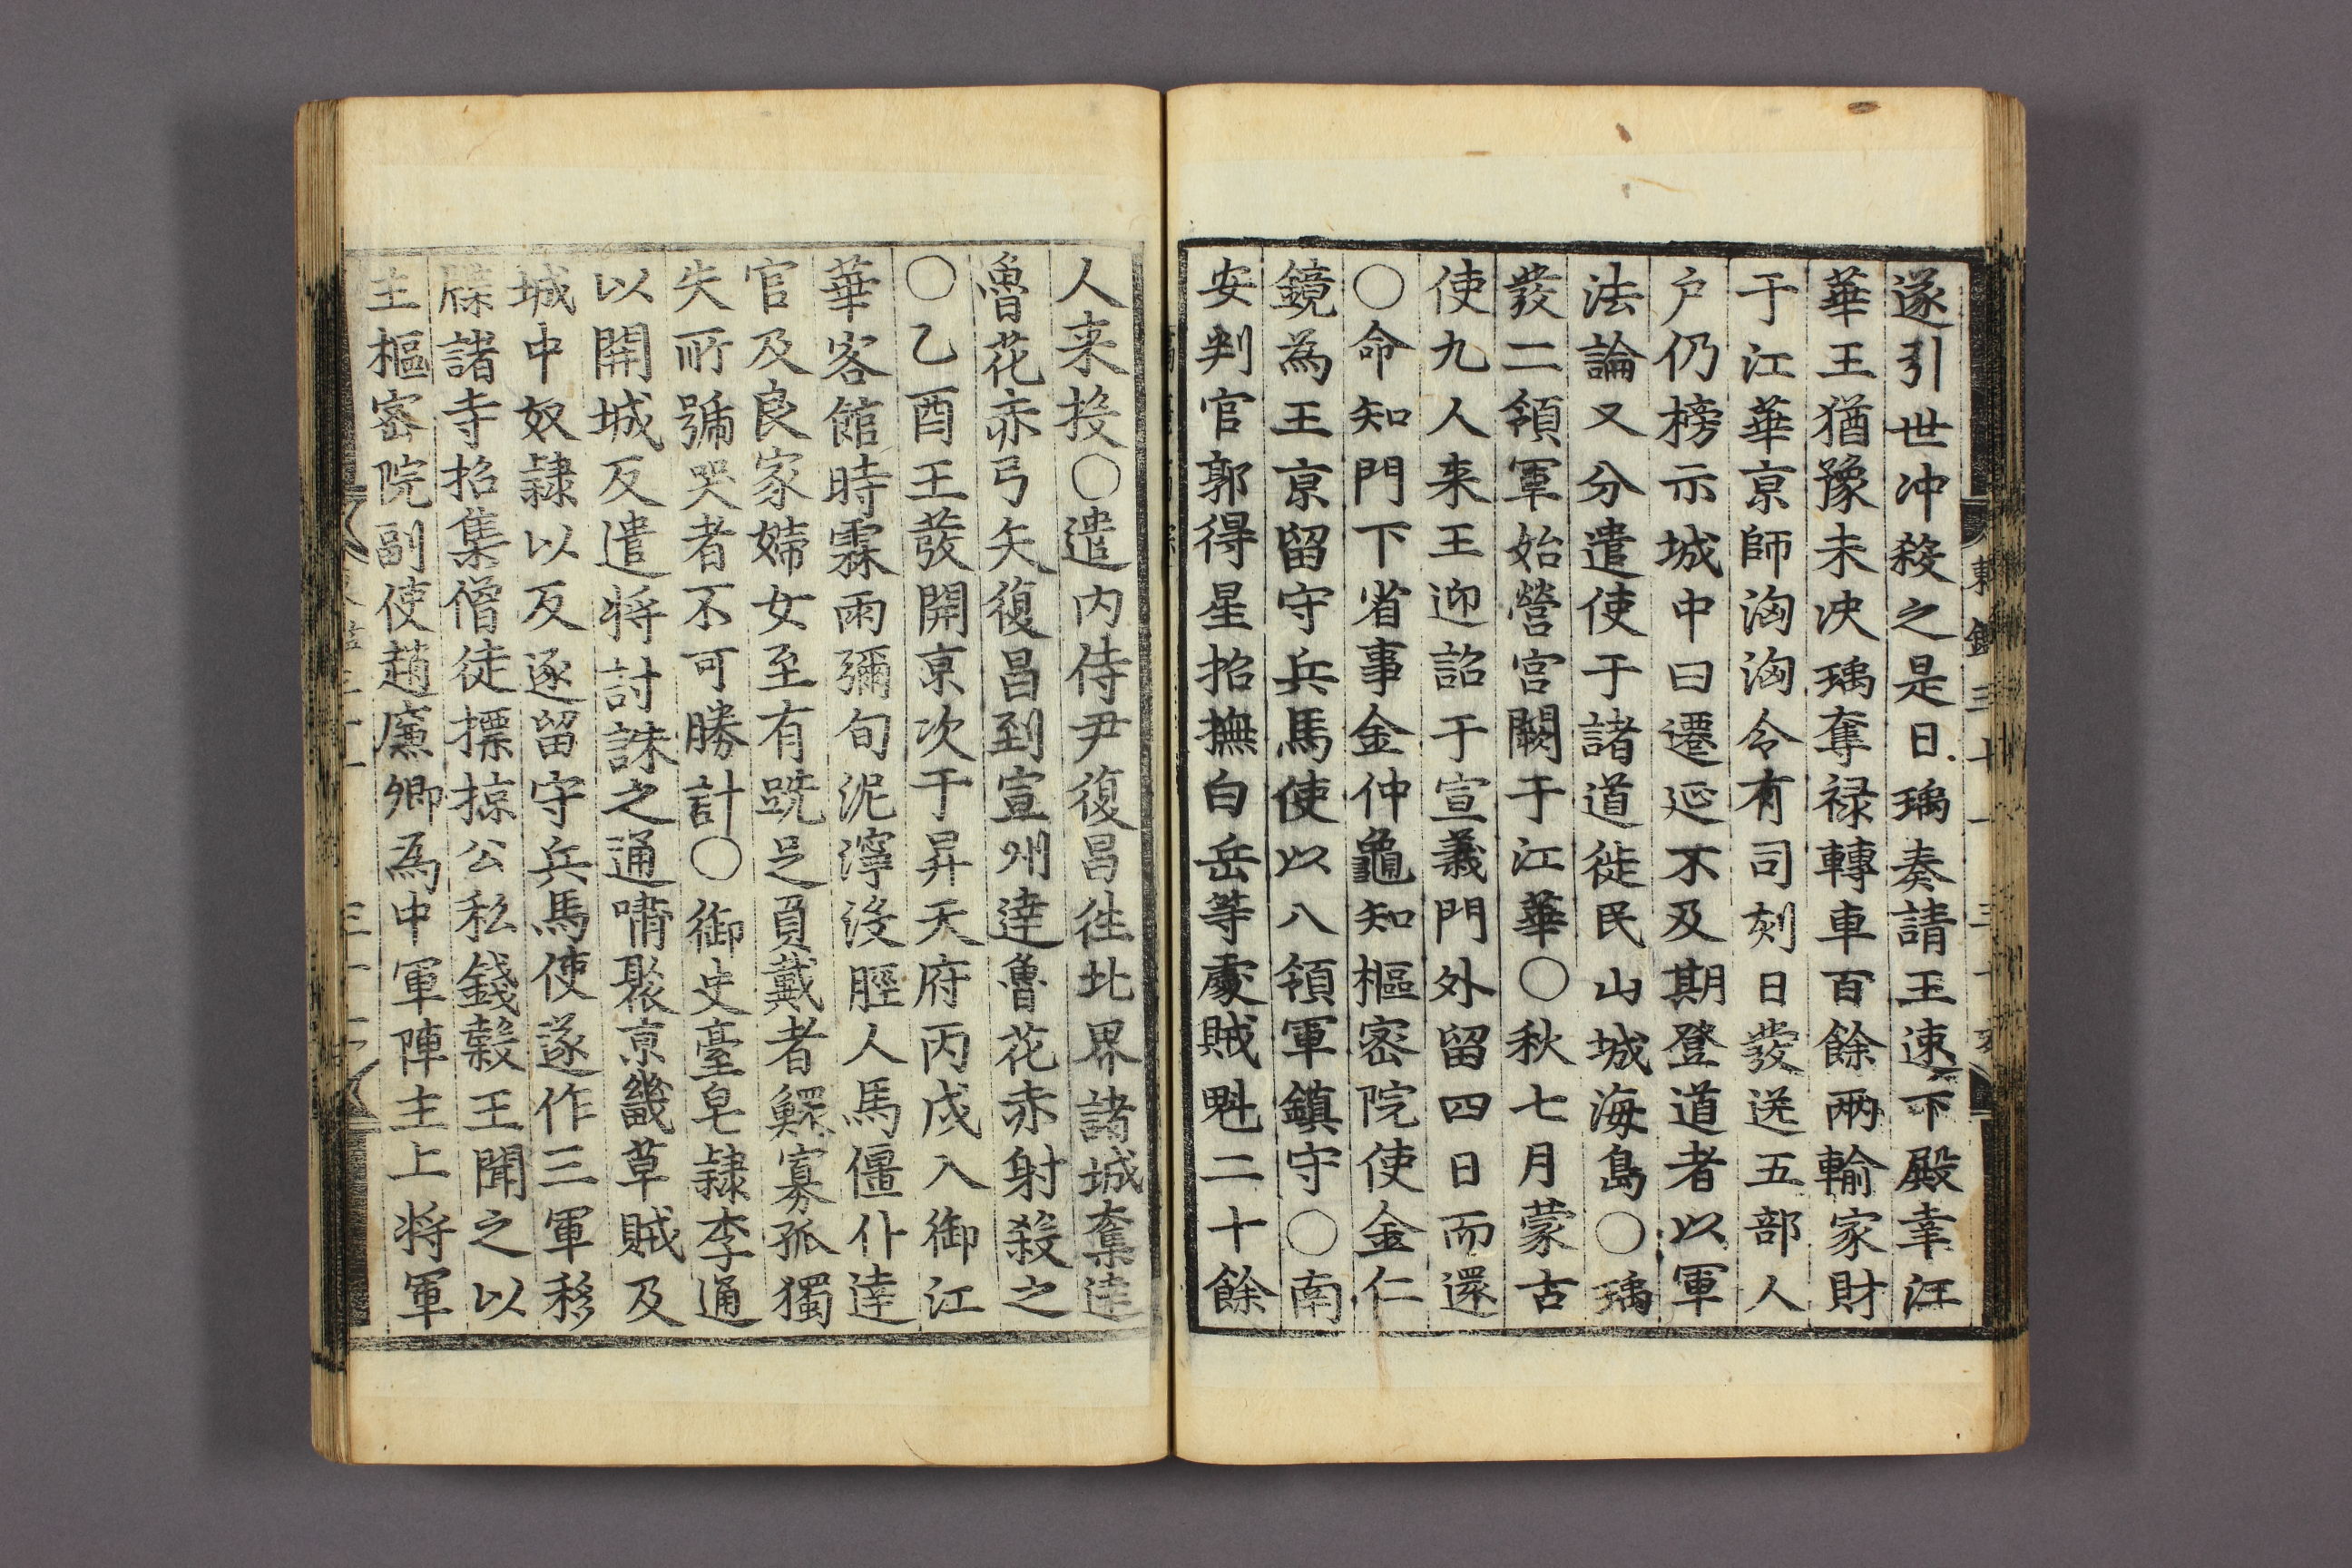 遂引世冲殺之是日瑀奏請王速下殿幸江
華王猶豫未決瑀奪祿轉車百餘兩輸家財
于江華京師洶洶令有司刻日發送五部人
戶仍榜示城中曰遷延不及期登道者以軍
法論又分遣使于諸道徙民山城海島〇瑀
發二領軍始營宮闕于江華〇秋七月蒙古
使九人来王迎詔于宣義門外留四日而還
〇命知門下省事金仲龜知樞密院使金仁
鏡為王京留守兵馬使以八領軍鎮守〇南
安判官郭得星招撫白岳等處賊魁二十餘
人来投〇遣内侍尹復昌往北界諸城奪達
魯花赤弓矢復昌到宣州達魯花赤射殺之
〇乙酉王發開京次于昇天府丙戌入御江
華客館時霖雨彌旬泥濘没脛人馬僵仆達
官及良家婦女至有跣足負戴者鰥寡孤獨
失所號哭者不可勝計〇御史臺皂隷李通
以開城反遣将討誅之通嘯聚京畿草賊及
城中奴隷以反逐留守兵馬使遂作三軍移
牒諸寺招集僧徒摽掠公私錢穀王聞之以
主樞密院副使趙廉卿為中軍陣主上将軍